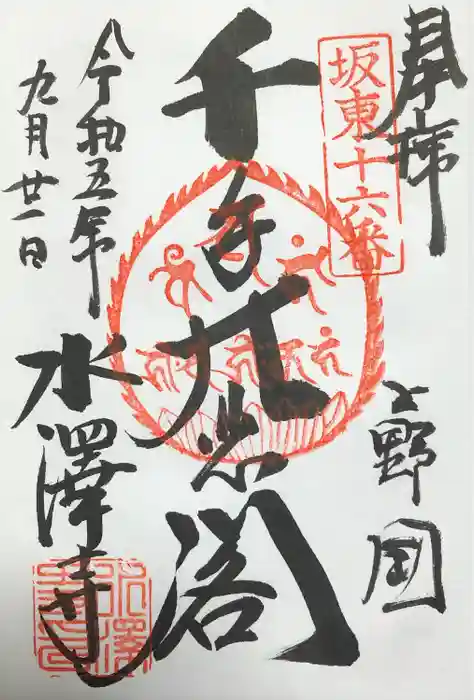 奉拝
坂東十六番
上野國
千手大悲閣
令和五年
九月廿一日
水澤寺